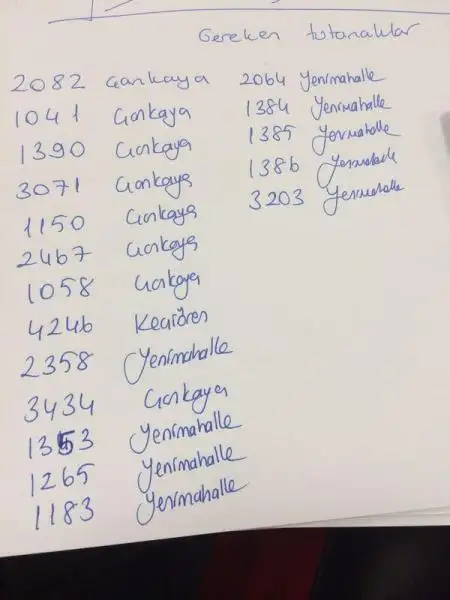 Gereken tutanaklar
2082 Çankaya
1041 Çankaya
1390 Çankaya
3071 Çankaya
1150 Çankaya
2467 Çankaya
1058 Çankaya
4246 Keçiören
2358 Yenimahalle
3434 Çankaya
1353 Yenimahalle
1265 Yenimahalle
1183 Yenimahalle
2064 Yenimahalle
1384 Yenimahalle
1385 Yenimahalle
1386 Yenimahalle
3203 Yenimahalle